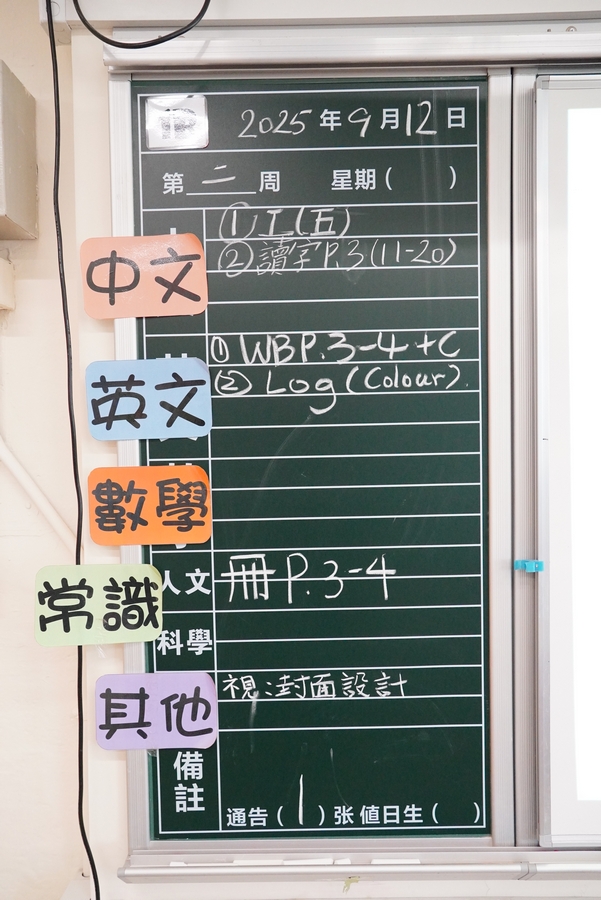 2025年9月12日
第二周 星期( )
① I(五)
② 讀字P.3(11-20)
中文
① WBP.3-4+C
② Log(Colour).
英文
數學
人文 冊P.3-4
常識
科學
視:封面設計
其他
備註
通告(1)张 值日生( )